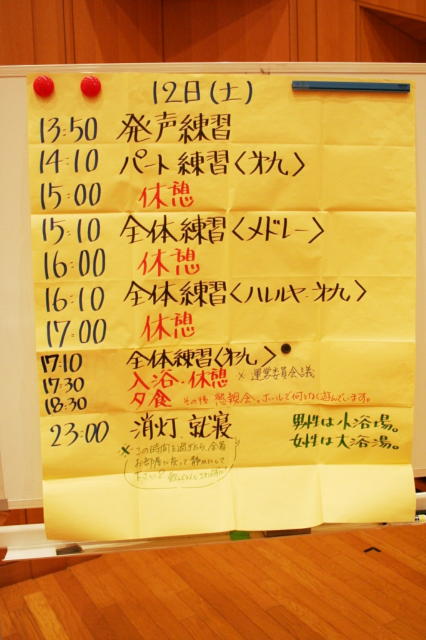 12日(土)
13:50 発声練習
14:10 パート練習〈㐧九〉
15:00 休憩
15:10 全体練習〈メドレー〉
16:00 休憩
16:10 全体練習〈ハレルヤ・㐧九〉
17:00 休憩
17:10 全体練習〈㐧九〉
17:30 入浴・休憩 ※運営委員会議
18:30 夕食 その後 懇親会。ホールで何となく遊んでいます。
23:00 消灯 就寝
男性は小浴場。
女性は大浴場。
※この時間を過ぎたら、全員
お部屋に戻って静かにして
下さい。